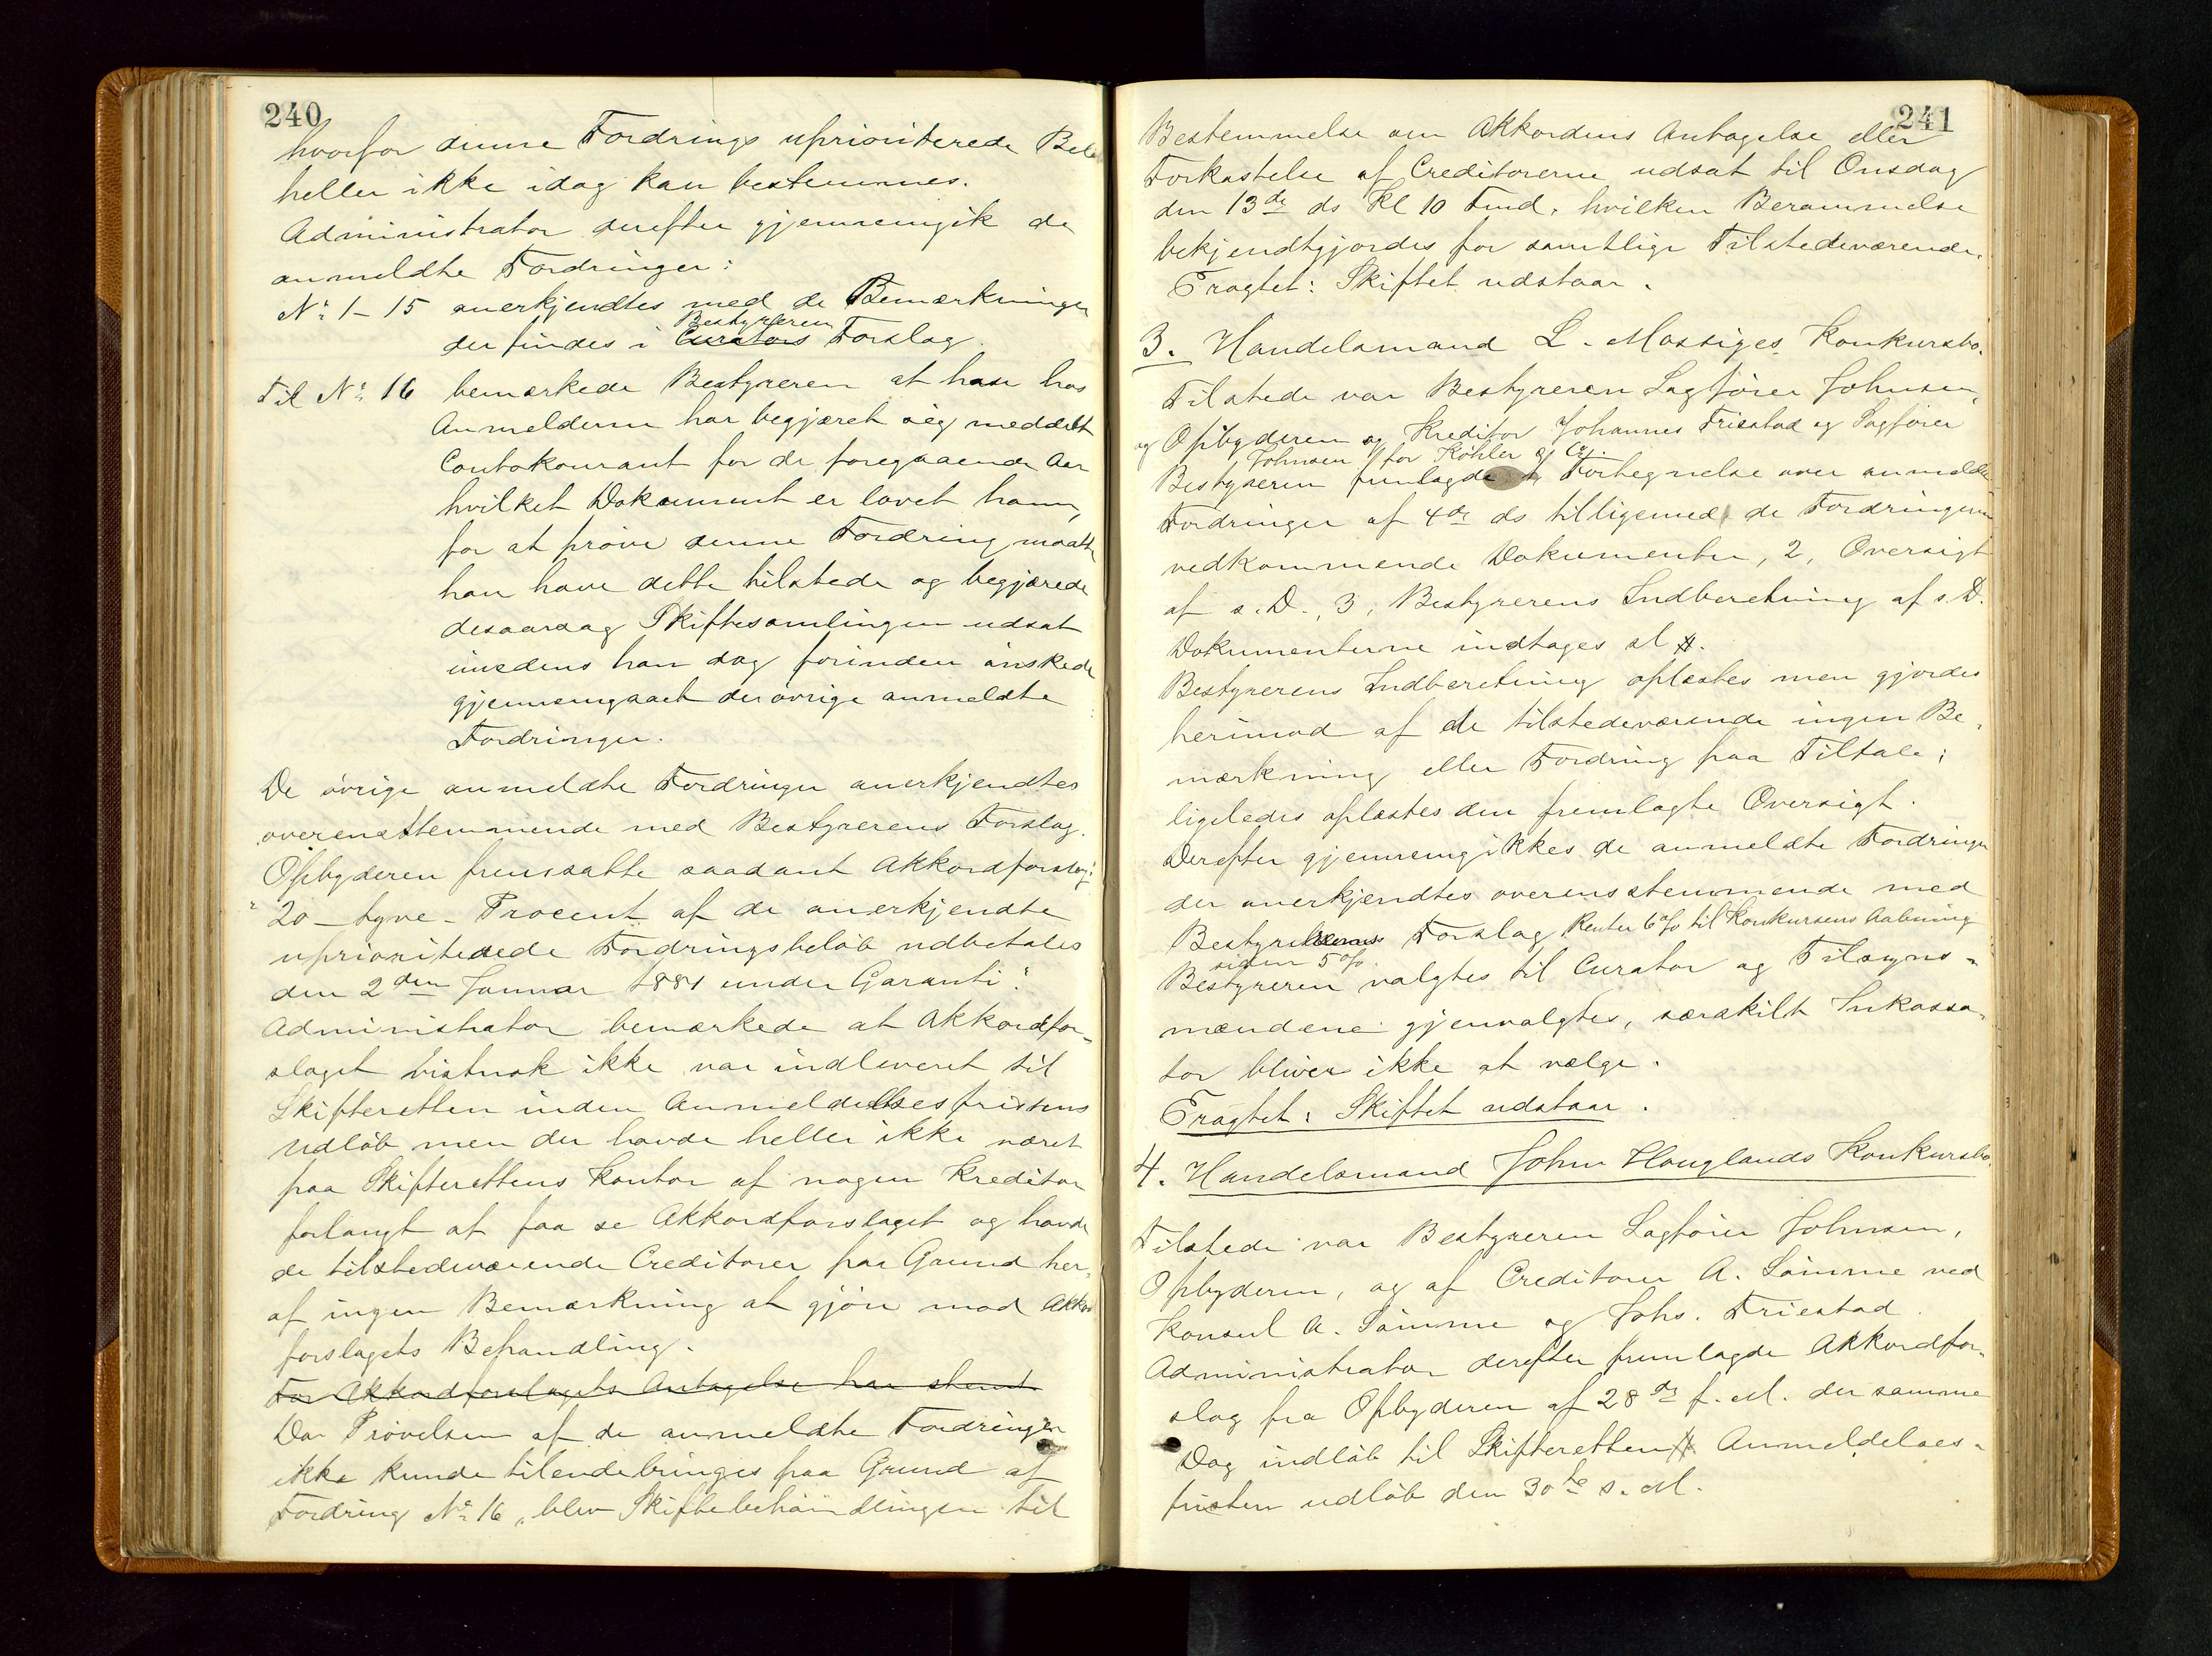 240
hvorfor denne Fordrings uprioriterede Belø
heller ikke idag kan bestemmes.
Administrator derefter gjennemgik de
anmeldte Fordringer:
No 1-15 anerkjendtes med de Bemærkninger
Bestyreren
der findes i Curators Forslag.
Til No 16 bemærkede Bestyreren at han hos
Anmelderne har begjæret sig meddelt
Contokourant for de foregaaende Aar
hvilket Dokument er lovet ham,
for at prøve denne Fordring maatte
han have dette tilstede og begjærede
desaarsag Skiftesamlingen udsat
imedens han dog forinden ønskede
gjennemgaaet de øvrige anmeldte
Fordringer.
De øvrige anmeldte Fordringer anerkjendtes
overensstemmende med Bestyrerens Forslag.
Opbyderen fremsatte saadant Akkordforslag:
"20 - tyve - Procent af de anerkjendte
uprioriterede Fordringsbeløb udbetales
den 2den Januar 1881 under Garanti".
Administrator bemærkede at Akkordfor-
slaget vistnok ikke var indleveret til
Skifteretten inden Anmeldelsesfristens
Udløb men der havde heller ikke været
paa Skifterettens Kontor af nogen Kreditor
forlangt at faa se Akkordforslaget og havde
de tilstedeværende Creditorer paa Grund her-
af ingen Bemærkning at gjøre mod Akkord
forslagets Behandling.
For Akkordforslagets Antagelse har stemt
Da Prøvelsen af de anmeldte Fordringer
ikke kunde tilendebringes paa Grund af
Fordring No 16, blev Skiftebehandlingen til
241
Bestemmelse om Akkordens Antagelse eller
Forkastelse af Creditorerne udsat til Onsdag
den 13de ds Kl 10 Fmd. hvilken Berammelse
bekjendtgjordes for samtlige Tilstedeværende.
Fragtet: Skiftet udstaar.
3. Handelsmand L. Mossiges Konkursbo.
Tilstede var Bestyreren Sagfører Johnsen,
og Opbyderen og Kreditor Johannes Friestad og Sagfører
Johnsen for Køhler & Co.
Bestyreren fremlagde Fortegnelse over anmeldte
Fordringer af 4de ds tilligemed de Fordringerne
vedkommende Dokumenter, 2, Oversigt
af s. D., 3, Bestyrerens Indberetning af s. D.
Dokumenterne indtages sl.
Bestyrerens Indberetning oplæstes men gjordes
herimod af de tilstedeværende ingen Be-
mærkning eller Fordring paa Tiltale;
ligeledes oplæstes den fremlagte Oversigt.
Derefter gjennemgikkes de anmeldte Fordringer
der anerkjendtes overensstemmende med
Bestyrerens Forslag Renter 6 % til Konkursens Aabning
siden 5 %.
Bestyreren valgtes til Curator og Tilsyns-
mændene gjenvalgtes, særskilt Inkassa-
tor bliver ikke at vælge.
Fragtet: Skiftet udstaar.
4. Handelsmand John Hauglands Konkursbo.
Tilstede var Bestyreren Sagfører Johnsen,
Opbyderen, og af Creditorer A. Sømme ved
Konsul A. Sømme og Johs. Friestad.
Administrator derefter fremlagde Akkordfor-
slag fra Opbyderen af 28de f. M. der samme
Dag indløb til Skifteretten. Anmeldelses-
fristen udløb den 30te s. M.